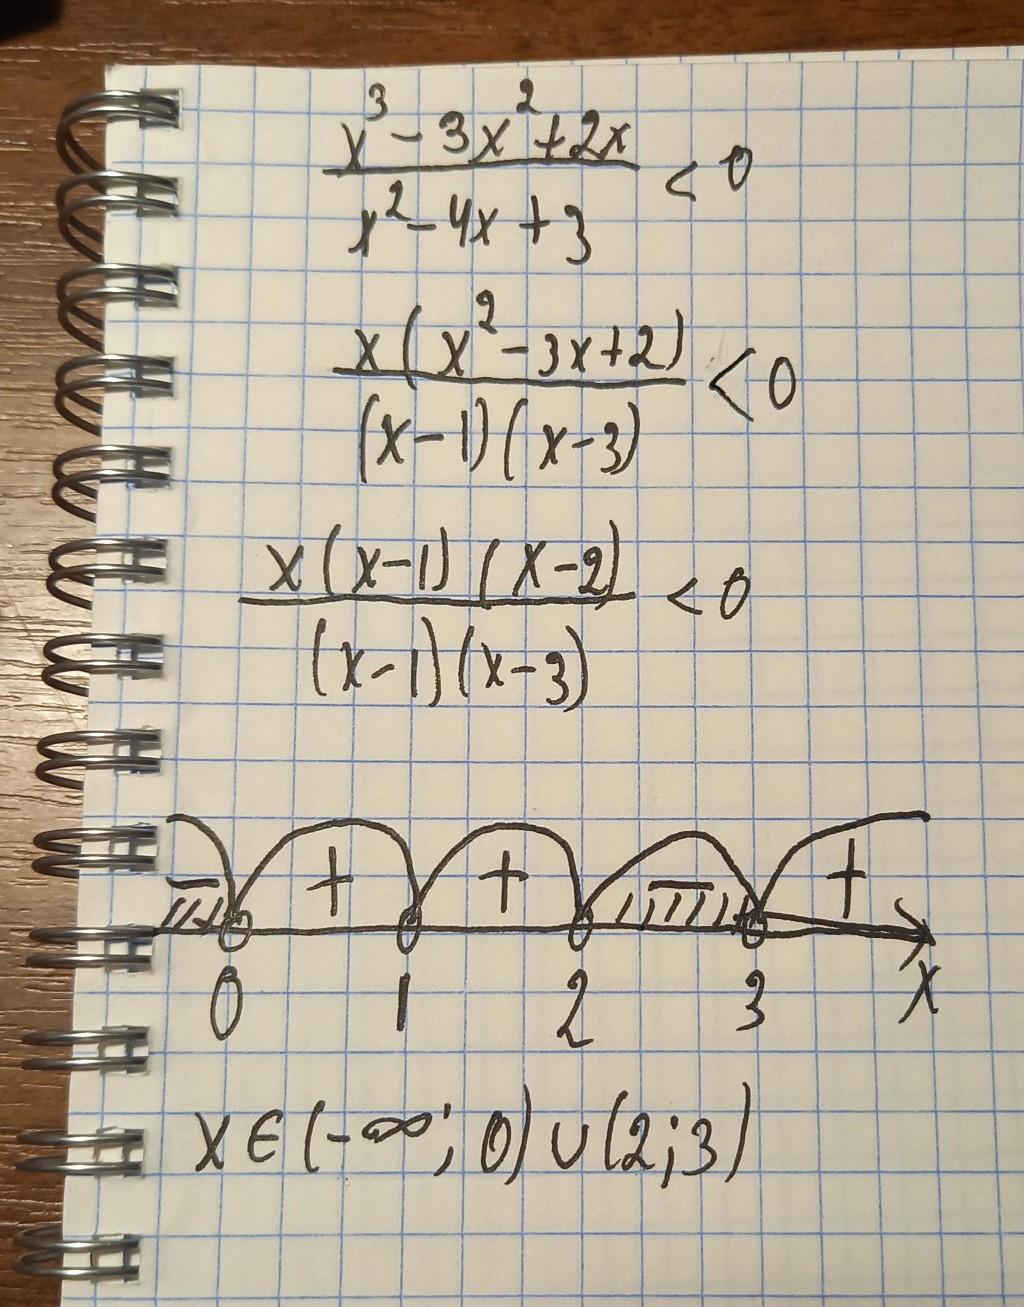 x³ - 3x² + 2x
x² - 4x + 3 < 0
x(x² - 3x + 2)
(x - 1)(x - 3) < 0
x(x - 1)(x - 2)
(x - 1)(x - 3) < 0
- + + - +
0 1 2 3 x
x ∈ (-∞; 0) ∪ (2; 3)